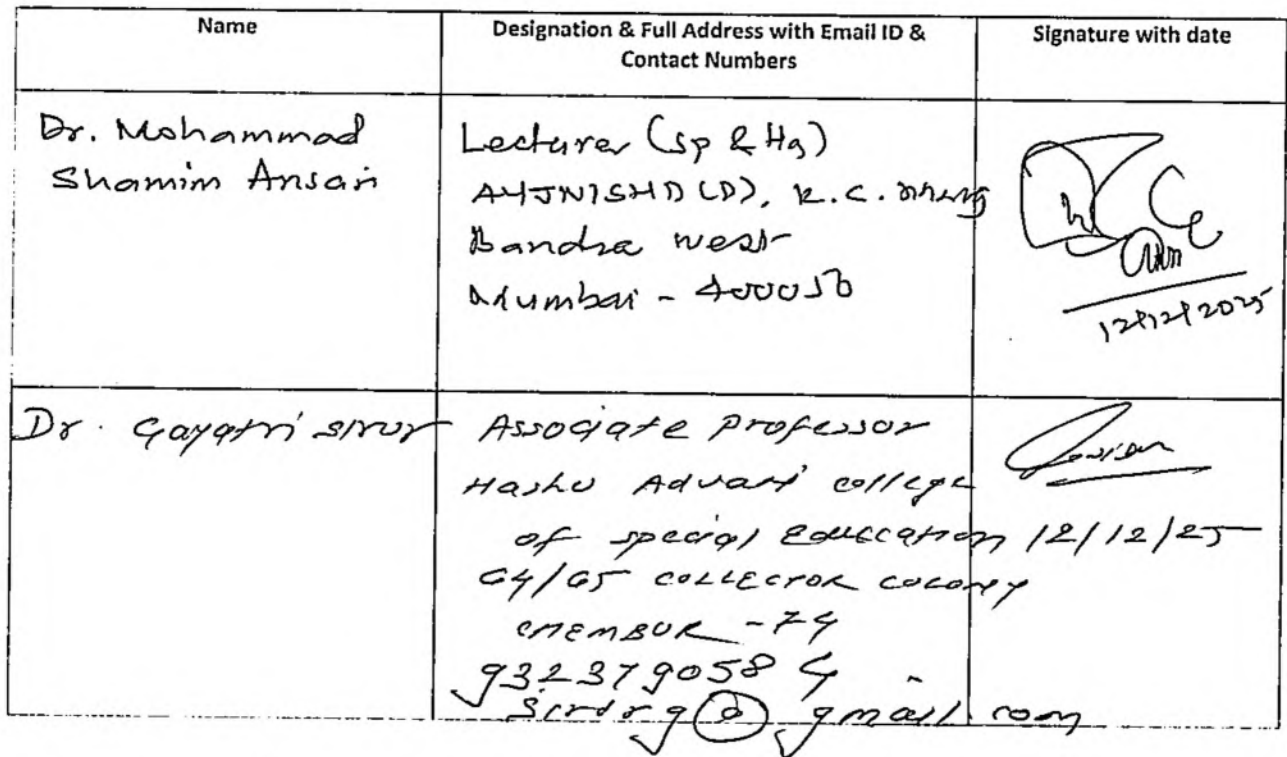 Name
Designation & Full Address with Email ID &
Contact Numbers
Signature with date
Dr. Mohammad
Shamim Ansari
Lecturer (Sp & Hg)
AYJNISHD (D), K.C. Marg
Bandra west
Mumbai - 400050
12/12/2025
Dr. Gayatri Sirur
Associate Professor
Hashu Advani college
of special Education
64/65 COLLECTOR COLONY
CHEMBUR - 74
9323790584
12/12/25